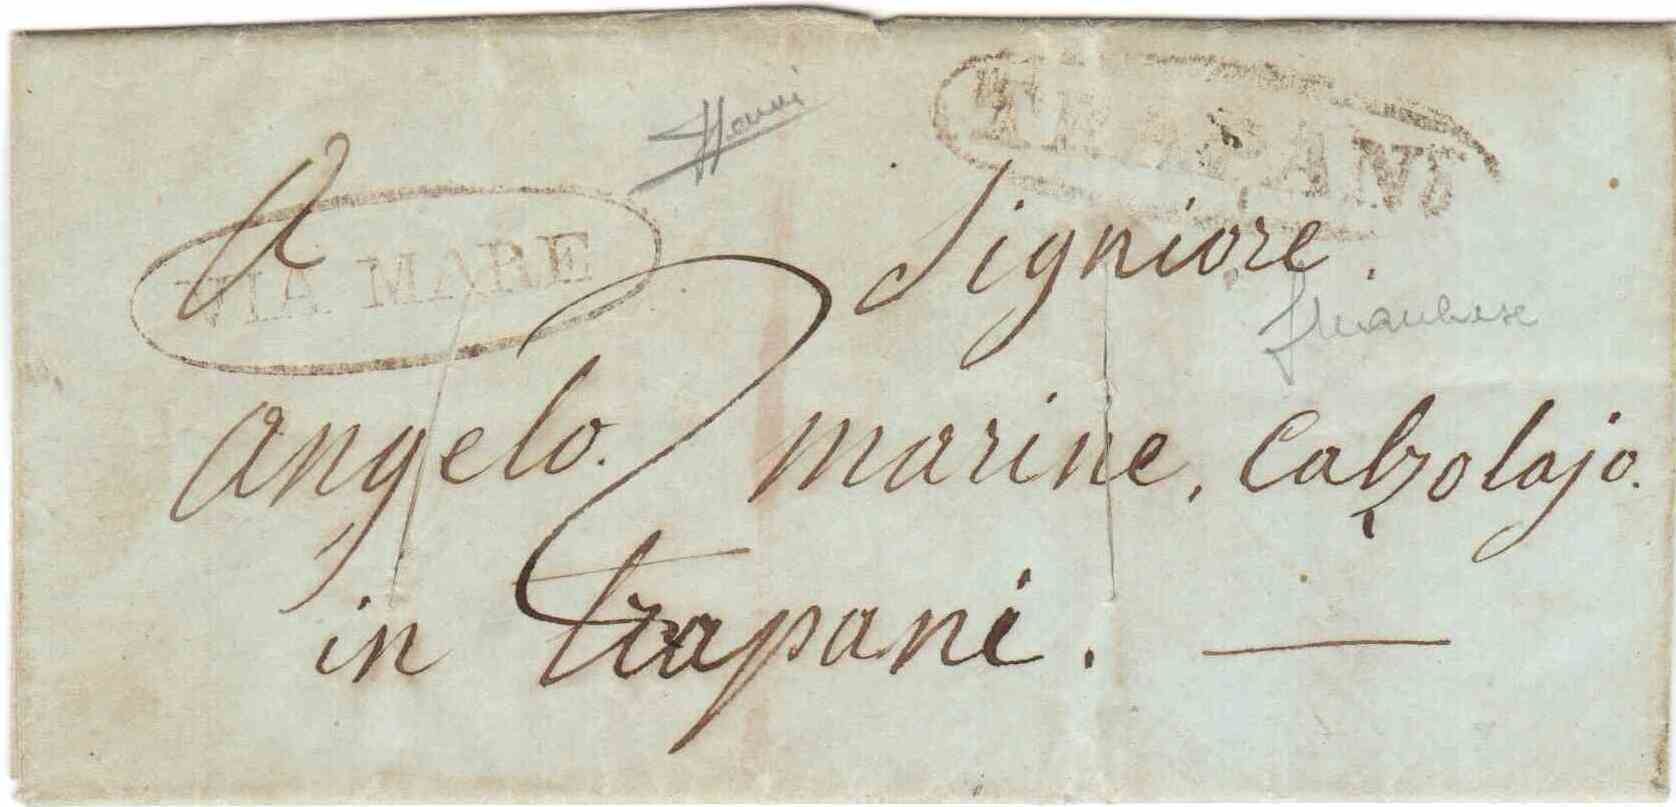 TRAPANI
VIA MARE
A Signiore.
angelo. marine. Calzolajo.
in trapani.